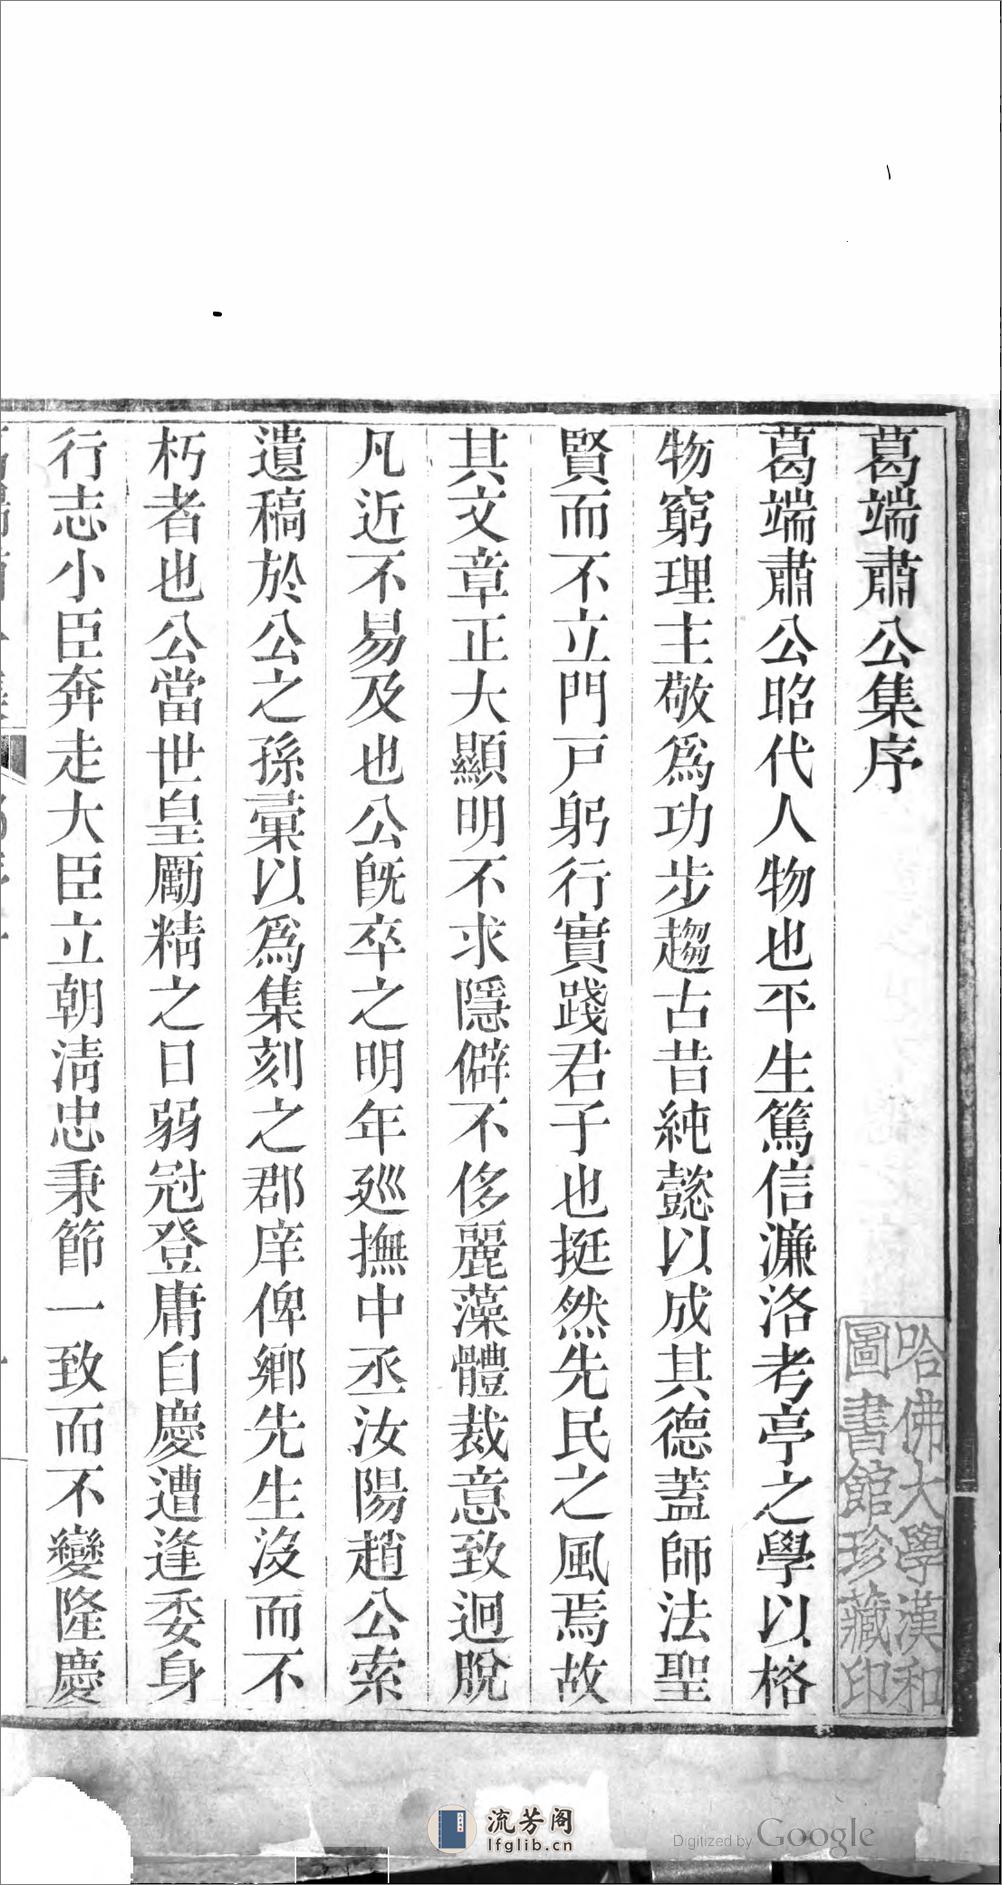 葛端肅公集序
葛端肅公昭代人物也平生篤信濂洛考亭之學以格
物窮理主敬爲功步趨古昔純懿以成其德蓋師法聖
賢而不立門戸躬行實踐君子也挺然先民之風焉故
其文章正大顯明不求隱僻不侈麗藻體裁意致迥脫
凡近不易及也公既卒之明年廵撫中丞汝陽趙公索
遺稿於公之孫彙以爲集刻之郡庠俾鄉先生沒而不
朽者也公當世皇勵精之日弱冠登庸自慶遭逢委身
行志小臣奔走大臣立朝清忠秉節一致而不變隆慶
哈佛大學漢和
圖書館珍藏印
流芳阁
lfglib.cn
Digitized by Google